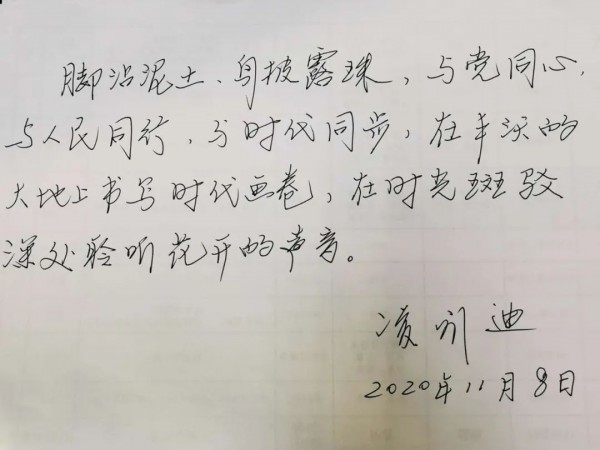 脚沾泥土、身披露珠，与党同心，
与人民同行，与时代同步，在丰沃的
大地上书写时代画卷，在时光斑驳
深处聆听花开的声音。
凌引迪
2020年11月8日